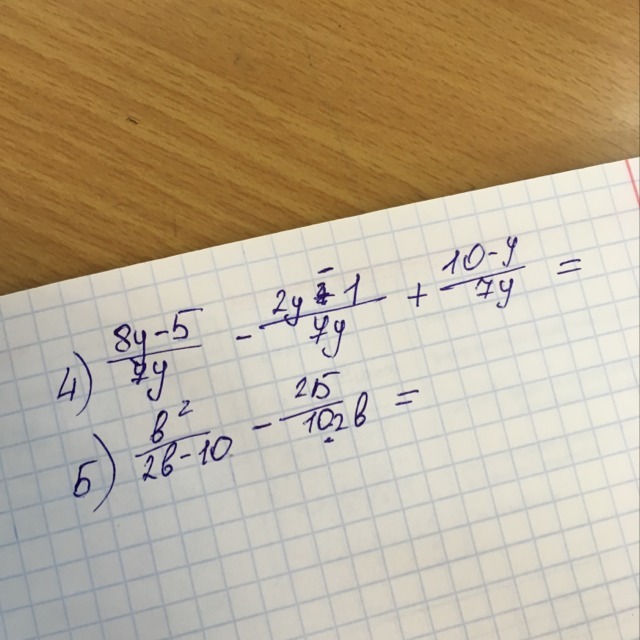 4) (8y-5)/(7y) - (2y-1)/(7y) + (10-y)/(7y) =
5) b²/(2b-10) - 25/(10-2b) =